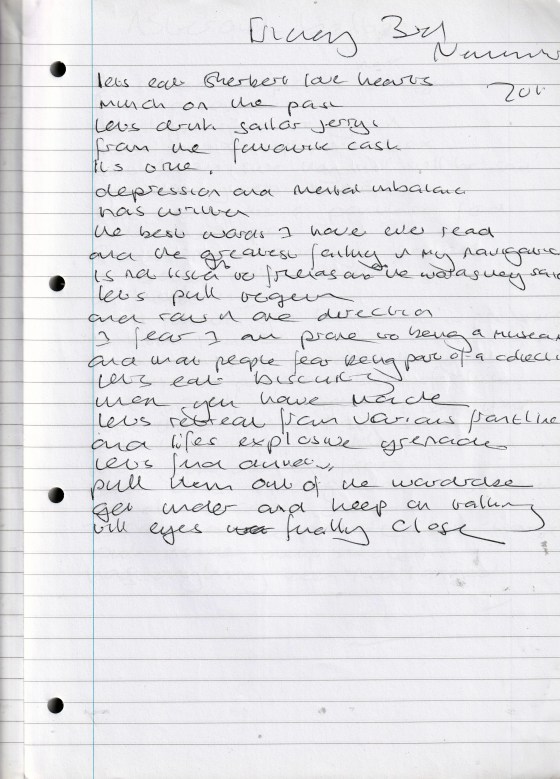 3rd
lets eat Sherbert love hearts
munch on the past
lets drink sailor jerrys
from the favourite cask
its true,
depression and mental imbalance
has written
the best words I have ever read
and the greatest failing in my navigation
is not listen to friends and the words they said
lets pull together
and row in one direction
I fear I am prone to being a museum
and that people fear being part of a collection
lets eat biscuits
that you have made
lets retreat from various frontline
and lifes explosive grenades
lets find duvets,
pull them out of the wardrobe
get under and keep on talking
till eyes finally close